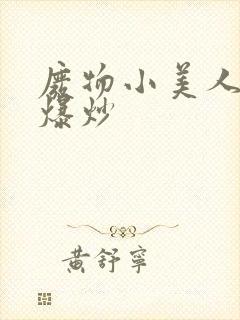 魔物小美人
爆炒
黄舒寧